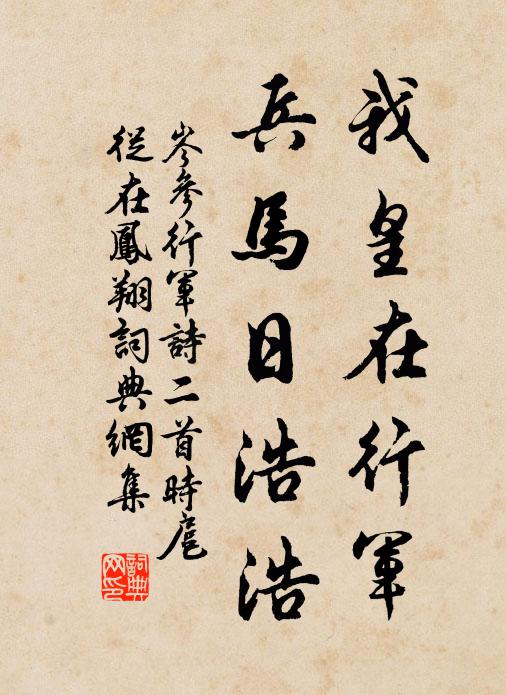 我皇在行軍
兵馬日浩浩
岑參行軍詩二首時扈
從在鳳翔詞典網集
詞典网印